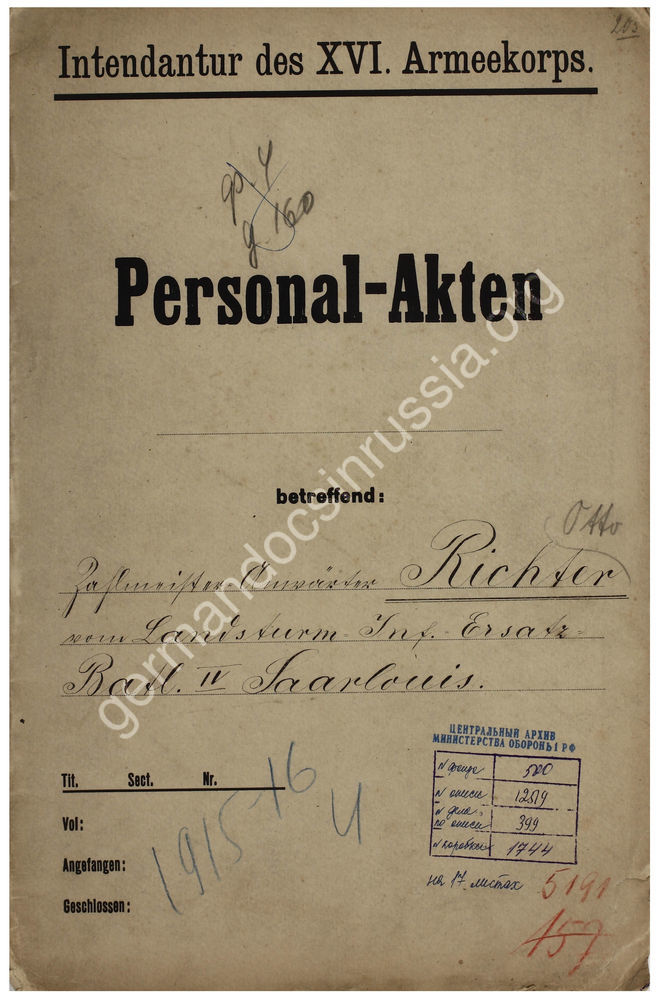 203
Intendantur des XVI. Armeekorps.
ф. 4
д. 160
Personal-Akten
betreffend:
Otto
Zahlmeister-Anwärter Richter
vom Landsturm-Inf.-Ersatz-
Batl. IV Saarlouis.
Tit. Sect. Nr.
Vol:
Angefangen:
Geschlossen:
1915-16
ЦЕНТРАЛЬНЫЙ АРХИВ
МИНИСТЕРСТВА ОБОРОНЫ РФ
N фонда 500
N описи 12519
N дела по описи 399
N коробки 1744
на 17 листах
5191
157
germandocsinrussia.org